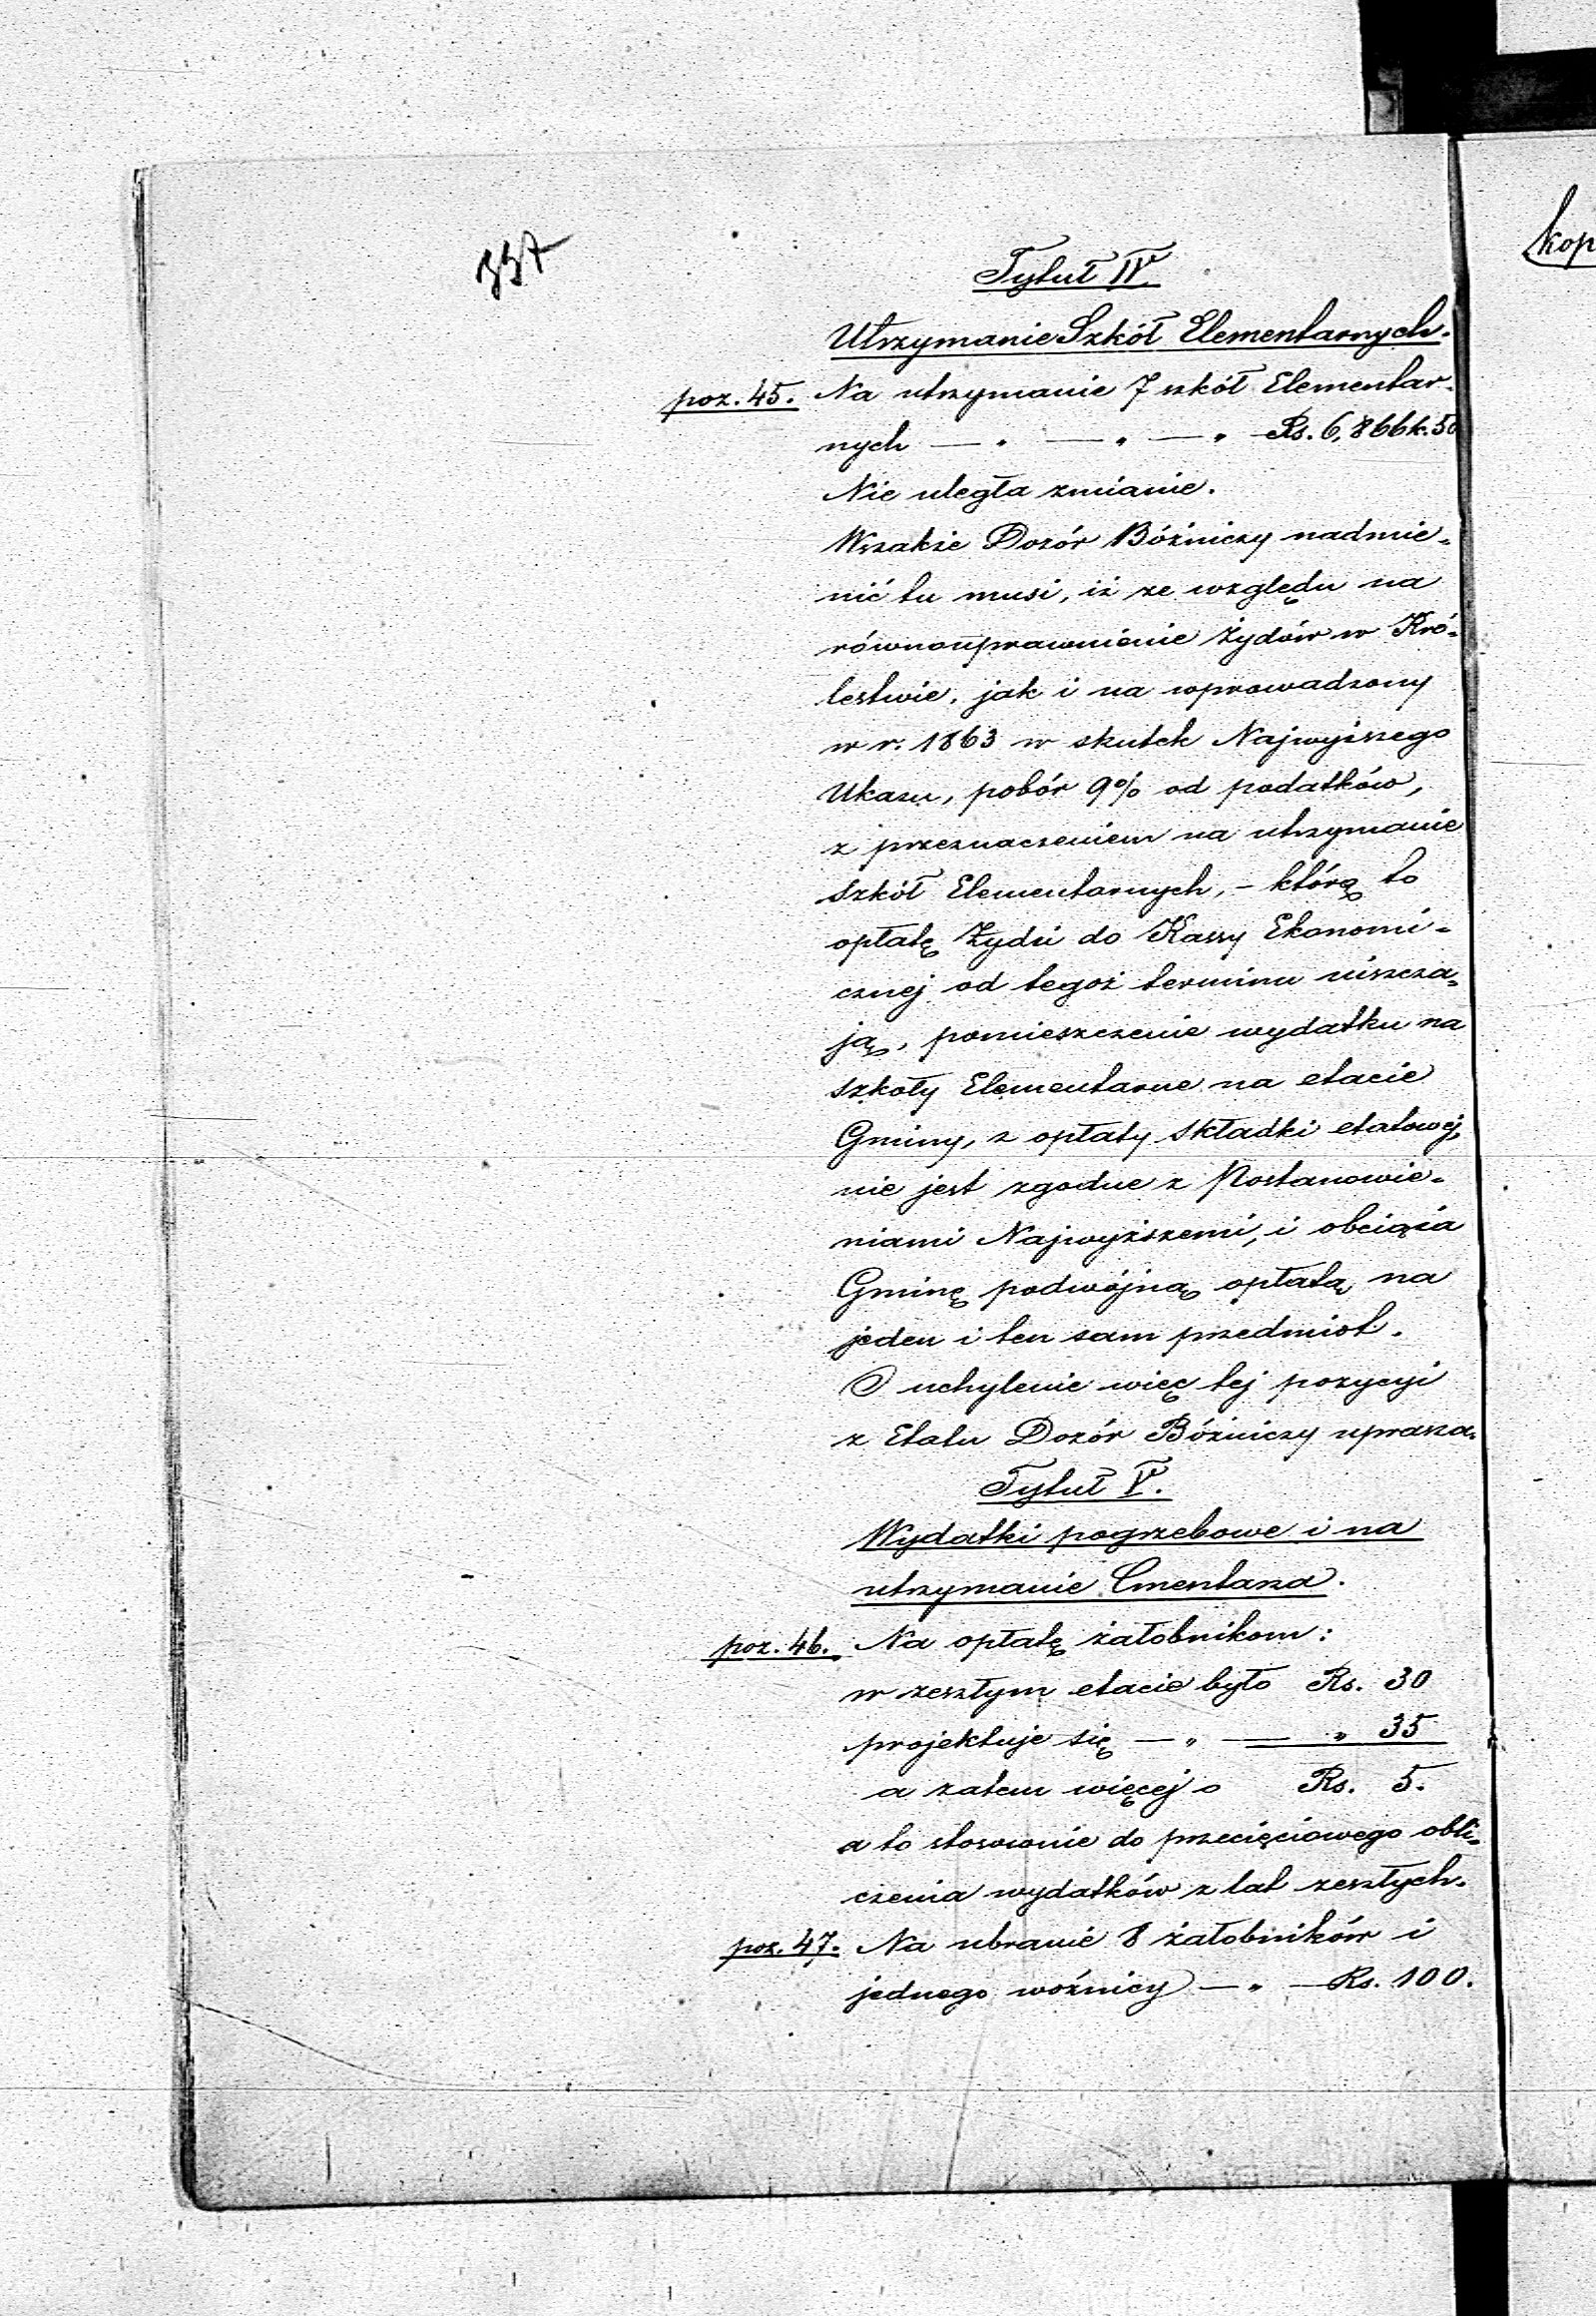 337
Tytuł IV.
Utrzymanie Szkół Elementarnych.
poz. 45. Na utrzymanie 7 szkół Elementar-
nych — „ — „ — „ Rs. 6,866 k. 50
Nie uległa zmianie.
Wszakże Dozór Bóżniczy nadmie-
nić tu musi, iż ze względu na
równouprawnienie Żydów w Kró-
lestwie, jak i na wprowadzony
w r. 1863 w skutek Najwyższego
Ukazu, pobór 9% od podatków,
z przeznaczeniem na utrzymanie
szkół Elementarnych, – którą to
opłatę Żydzi do Kassy Ekonomi-
cznej od tegoż terminu uiszcza-
ją, pomieszczenie wydatku na
szkoły Elementarne na etacie
Gminy, z opłaty składki etatowej,
nie jest zgodne z Postanowie-
niami Najwyższemi, i obciąża
Gminę podwójną opłatą na
jeden i ten sam przedmiot.
O uchylenie więc tej pozycyi
z Etatu Dozór Bóżniczy uprasza.
Tytuł V.
Wydatki pogrzebowe i na
utrzymanie Cmentarza.
poz. 46. Na opłatę żałobnikom:
w zeszłym etacie było Rs. 30
projektuje się — „ — „ 35
a zatem więcej o Rs. 5.
a to stosownie do przecięciowego obli-
czenia wydatków z lat zeszłych.
poz. 47. Na ubranie 8 żałobników i
jednego woźnicy — „ — Rs. 100.
kop